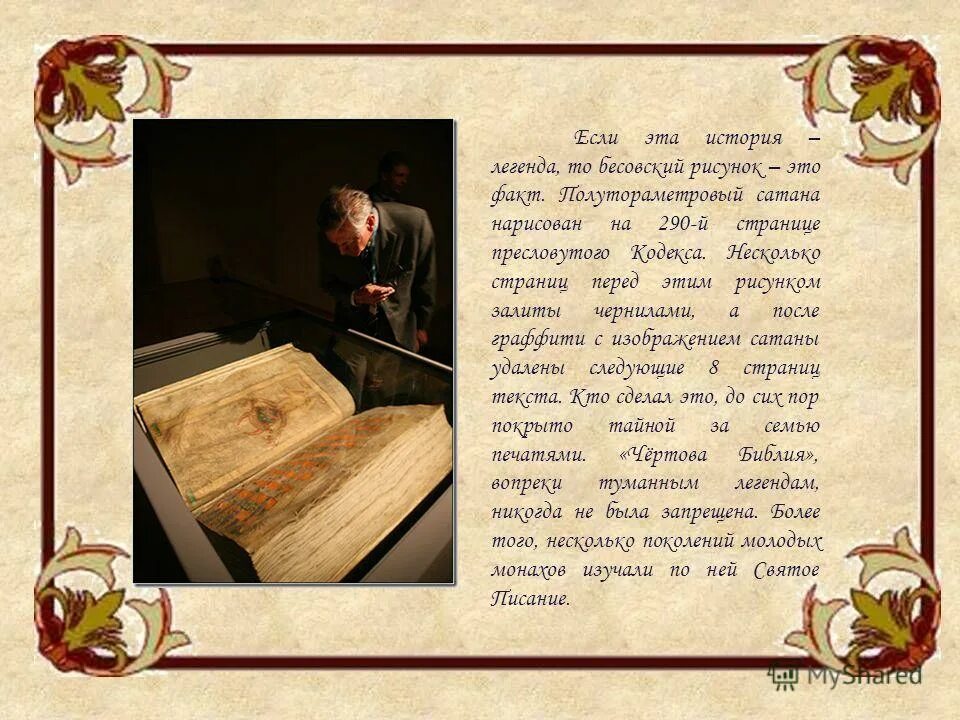 Если эта история –
легенда, то бесовский рисунок – это
факт. Полутораметровый сатана
нарисован на 290-й странице
пресловутого Кодекса. Несколько
страниц перед этим рисунком
залиты чернилами, а после
граффити с изображением сатаны
удалены следующие 8 страниц
текста. Кто сделал это, до сих пор
покрыто тайной за семью
печатями. «Чёртова Библия»,
вопреки туманным легендам,
никогда не была запрещена. Более
того, несколько поколений молодых
монахов изучали по ней Святое
Писание.
MyShared